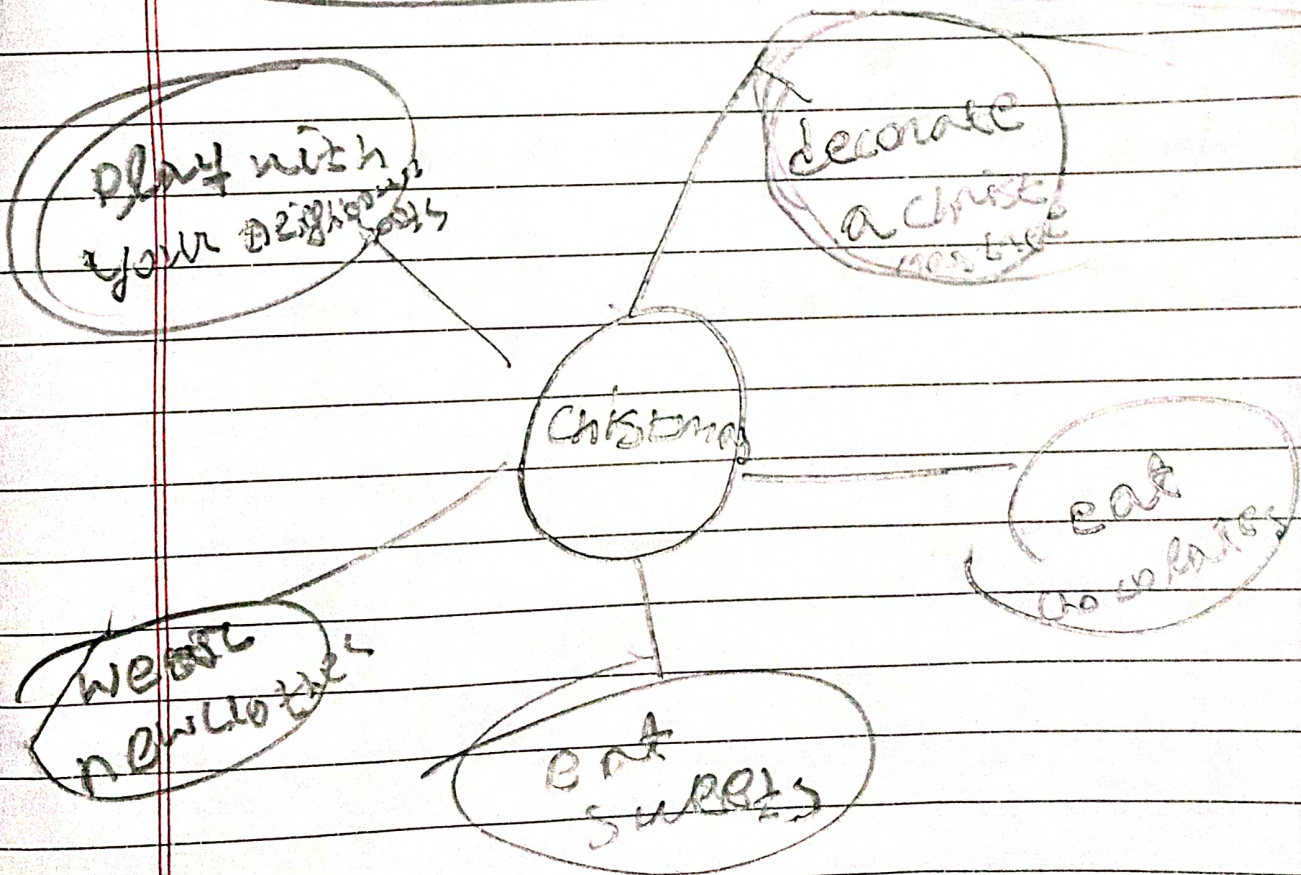 play with
your neighbours
decorate
a christ
mas tree
Chistmas
eat
chocolaites
wear
new clothes
eat
sweets